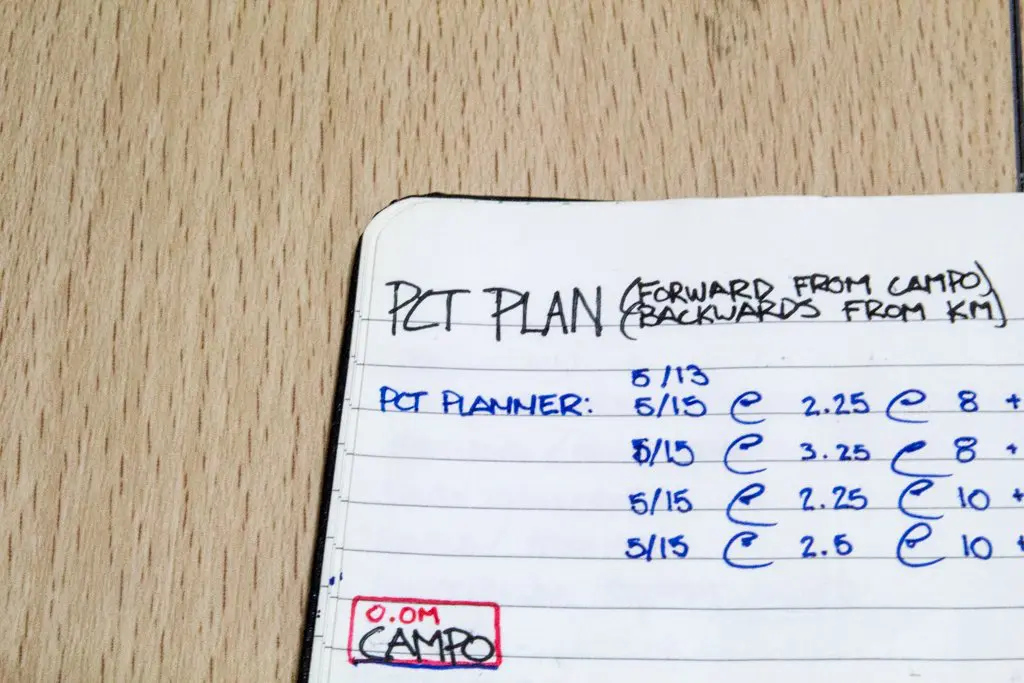 PCT PLAN (FORWARD FROM CAMPO)
(BACKWARDS FROM KM)
5/13
PCT PLANNER: 5/15 @ 2.25 @ 8 +
5/15 @ 3.25 @ 8 +
5/15 @ 2.25 @ 10 +
5/15 @ 2.5 @ 10 +
0.0M
CAMPO